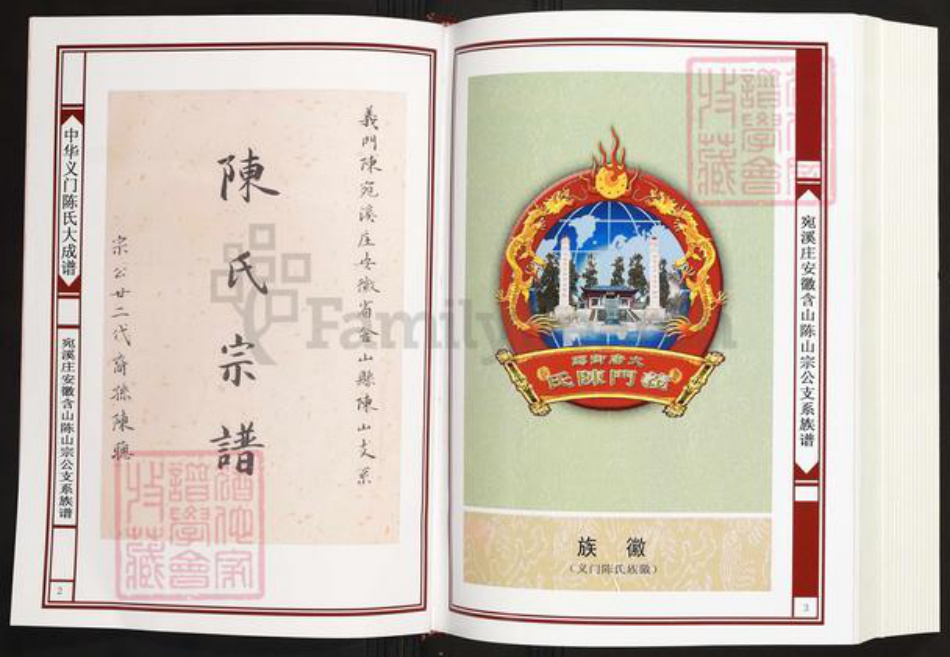 中华义门陈氏大成谱
宛溪庄安徽含山陈山宗公支系族谱
2
義門陳宛溪庄安徽省含山縣陳山支系
陳氏宗譜
宗公廿二代裔孫陳
收藏
譜學會
Family
大唐御賜
義門陳氏
族徽
(义门陈氏族徽)
宛溪庄安徽含山陈山宗公支系族谱
3
收藏
譜學會